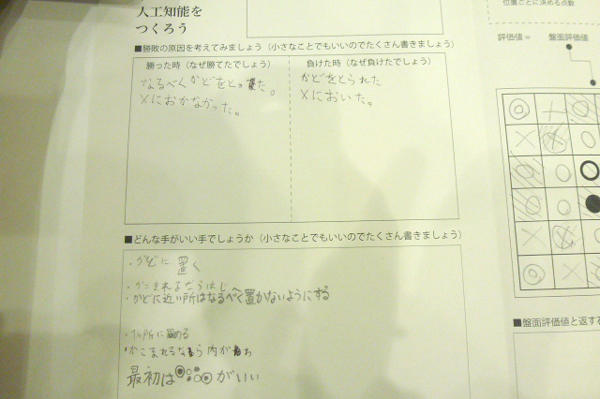 人工知能を
つくろう
位置ごとに決める点数
評価値＝　盤面評価値
■勝敗の原因を考えてみましょう（小さなことでもいいのでたくさん書きましょう）
勝った時（なぜ勝てたでしょう）
なるべくかどをとった。
Xにおかなかった。
負けた時（なぜ負けたでしょう）
かどをとられた
Xにおいた。
■どんな手がいい手でしょうか（小さなことでもいいのでたくさん書きましょう）
・かどに置く
・かこまれるならはじ
・かどに近い所はなるべく置かないようにする
かこまれるなら内が
最初は　がいい
■盤面評価値と返す